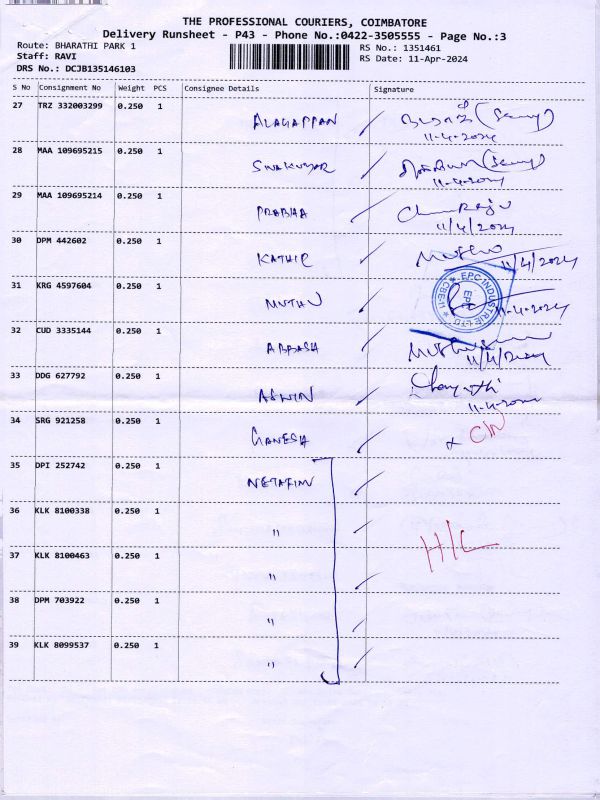 THE PROFESSIONAL COURIERS, COIMBATORE
Delivery Runsheet - P43 - Phone No.:0422-3505555 - Page No.:3
Route: BHARATHI PARK 1
RS No.: 1351461
Staff: RAVI
RS Date: 11-Apr-2024
DRS No.: DCJB135146103
S No Consignment No Weight PCS Consignee Details Signature
27 TRZ 332003299 0.250 1 ALAGAPPAN
11-4-2024
28 MAA 109695215 0.250 1 SIVAKUMAR
11-4-2024
29 MAA 109695214 0.250 1 PRABHA
11/4/2024
30 DPM 442602 0.250 1 KATHIR
11/4/2024
31 KRG 4597604 0.250 1 MUTHU EPC INDUSTRIE LTD CBE-11 EPC
11-4-2024
32 CUD 3335144 0.250 1 ABBASH
11/4/2024
33 DDG 627792 0.250 1 ASWIN
11-4-2024
34 SRG 921258 0.250 1 GANESH
35 DPI 252742 0.250 1 NETAFIM
36 KLK 8100338 0.250 1 "
H/C
37 KLK 8100463 0.250 1 "
38 DPM 703922 0.250 1 "
39 KLK 8099537 0.250 1 "